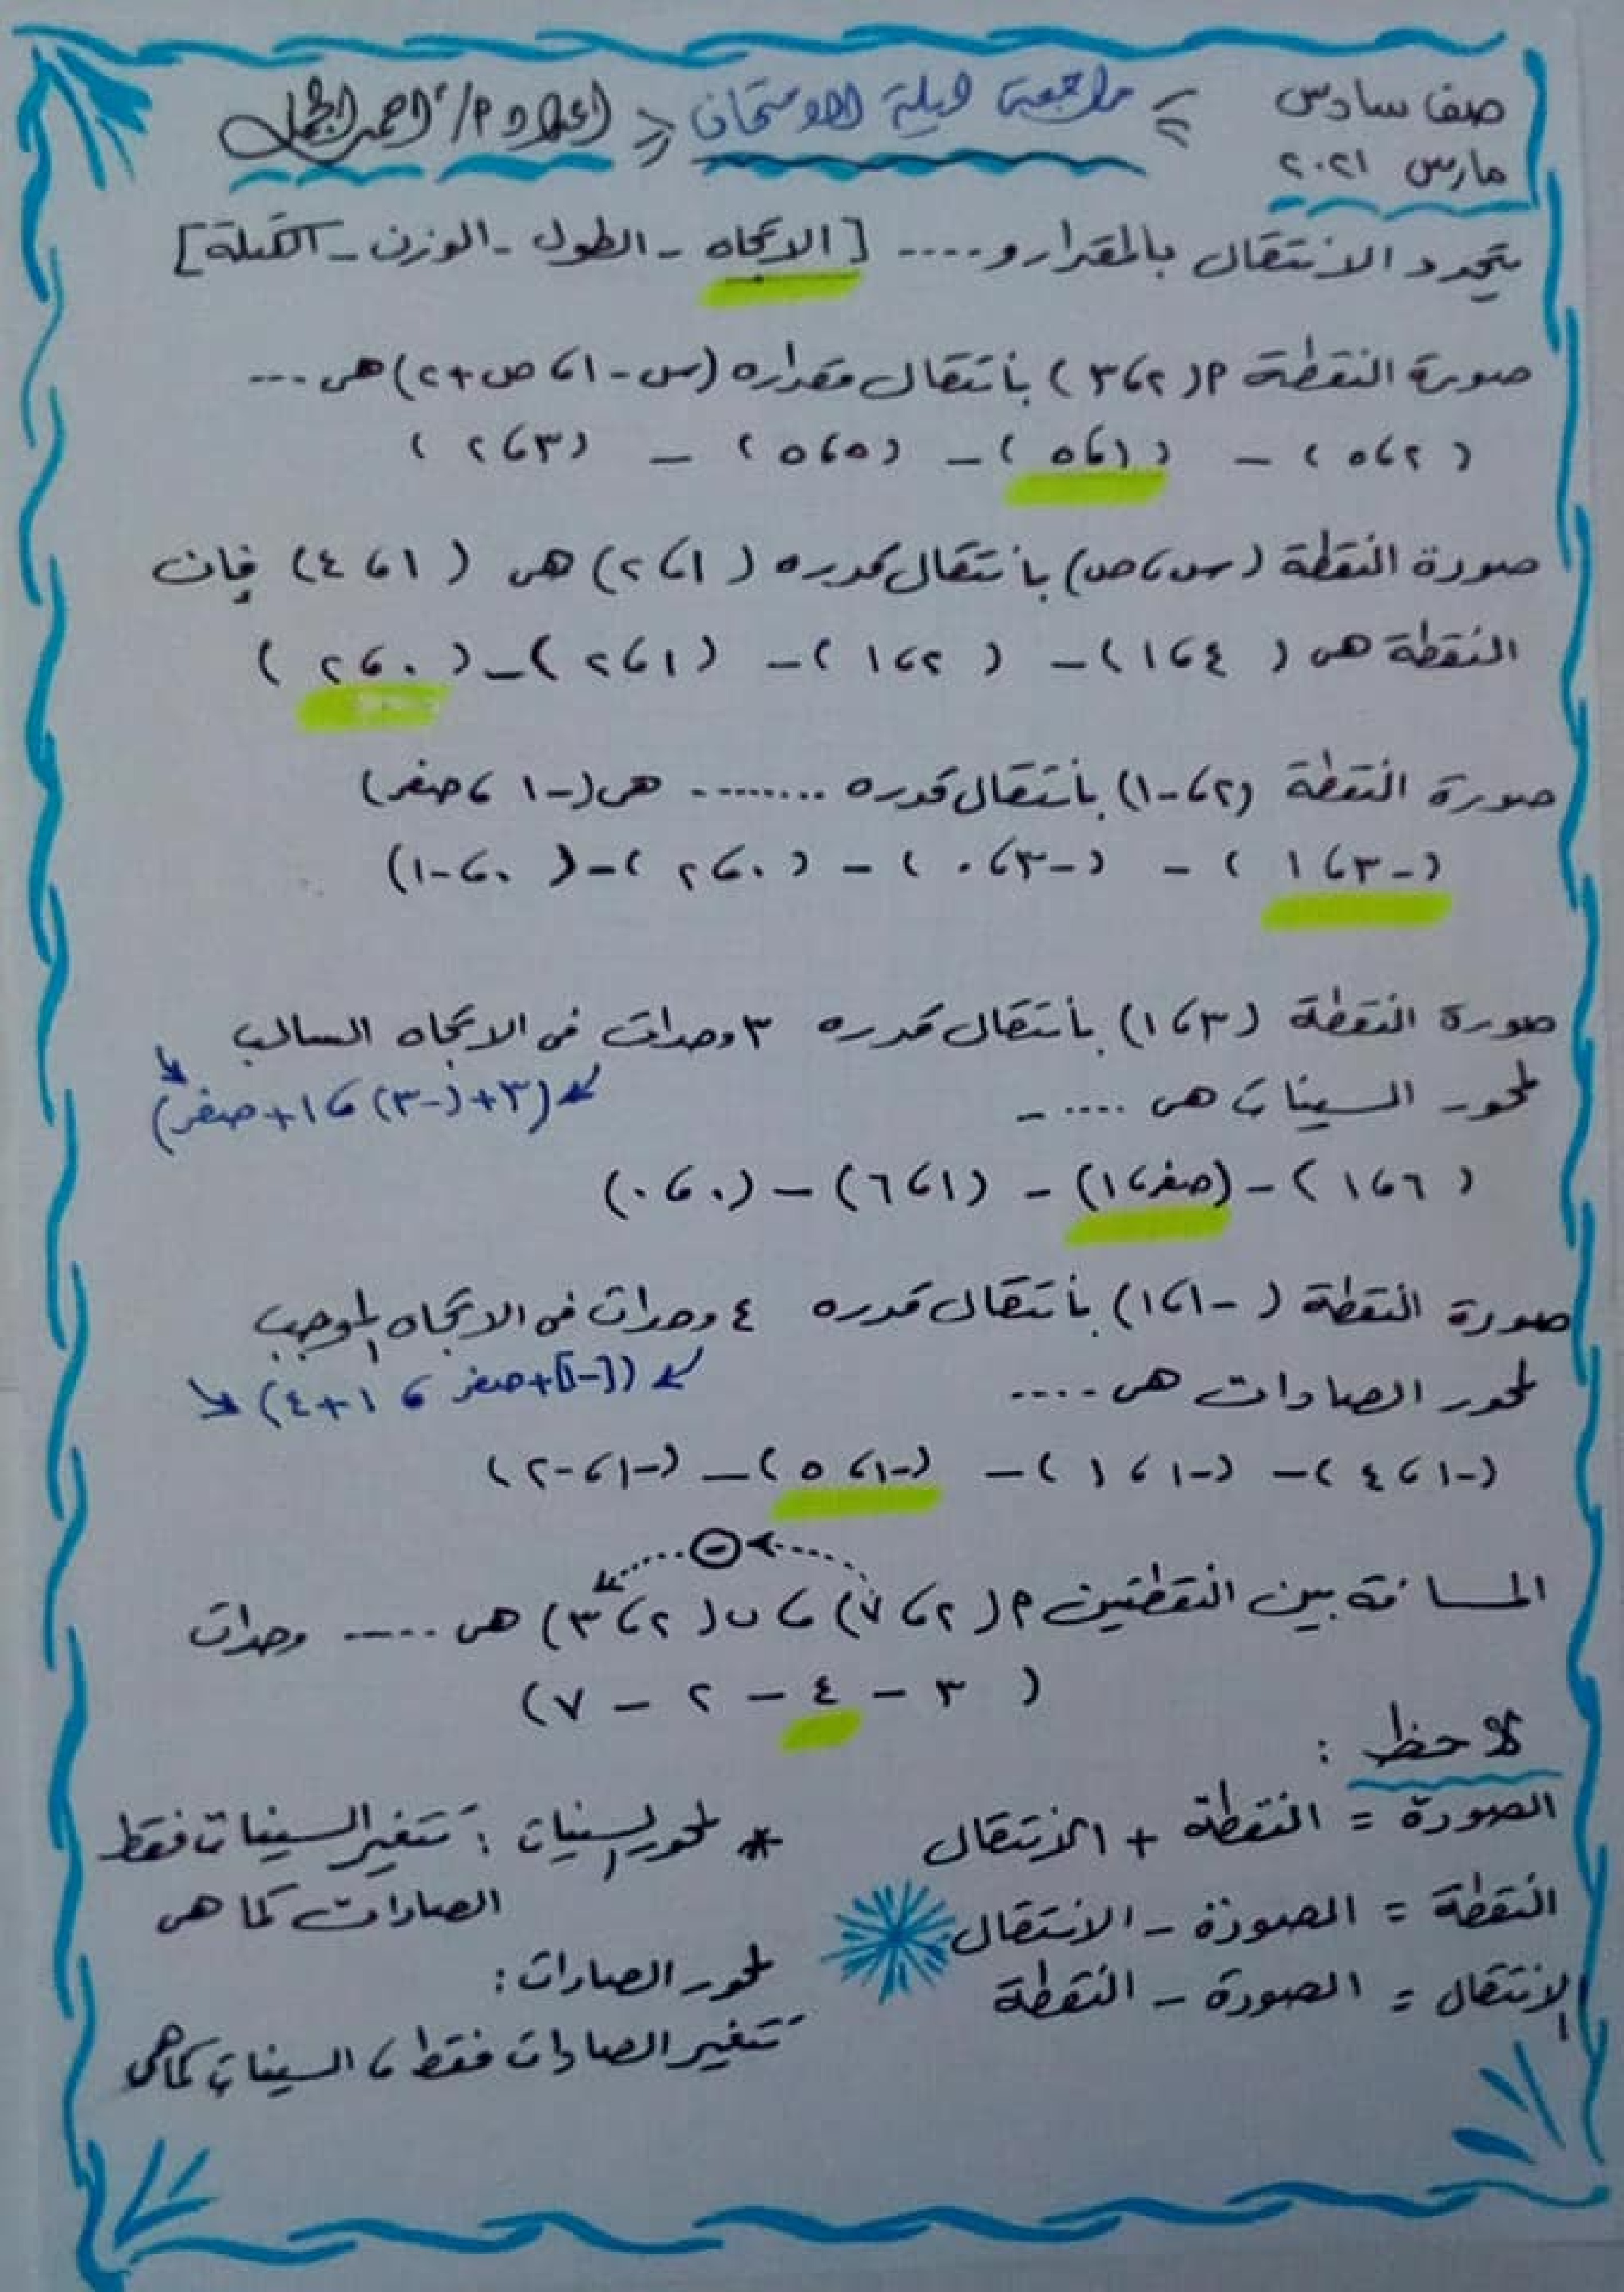 صف سادس
مارس ٢٠٢١
مراجعة ليلة الامتحان
إعداد م/ أحمد الجمل
يتحدد الانتقال بالمقدار و .... [ الاتجاه - الطول - الوزن - الكتلة ]
صورة النقطة م (٢، ٣) بأنتقال مقداره (س - ١، ص + ٢) هى ...
(٢، ٥) - (١، ٥) - (٥، ٥) - (٣، ٢)
صورة النقطة (س، ص) بأنتقال قدره (١، ٢) هى (١، ٤) فإن
النقطة هى (٤، ١) - (٢، ١) - (١، ٢) - (٠، ٢)
صورة النقطة (٢، -١) بأنتقال قدره ........ هى (-١، صفر)
(-٣، ١) - (-٣، ٠) - (٠، ٢) - (٠، -١)
صورة النقطة (٣، ١) بأنتقال قدره ٣ وحدات فى الاتجاه السالب
لمحور السينات هى .... -
(٣ + (-٣)، ١ + صفر)
(٦، ١) - (صفر، ١) - (١، ٦) - (٠، ٠)
صورة النقطة (-١، ١) بأنتقال قدره ٤ وحدات فى الاتجاه الموجب
لمحور الصادات هى ....
([-١] + صفر، ١ + ٤)
(-١، ٤) - (-١، ١) - (-١، ٥) - (-١، -٢)
-
المسافة بين النقطتين م (٢، ٧)، ب (٢، ٣) هى ..... وحدات
(٣ - ٤ - ٢ - ٧)
لاحظ :
الصورة = النقطة + الانتقال
النقطة = الصورة - الانتقال
الانتقال = الصورة - النقطة
* لمحور السينات : تتغير السينات فقط
الصادات كما هى
لمحور الصادات :
تتغير الصادات فقط، السينات كما هى